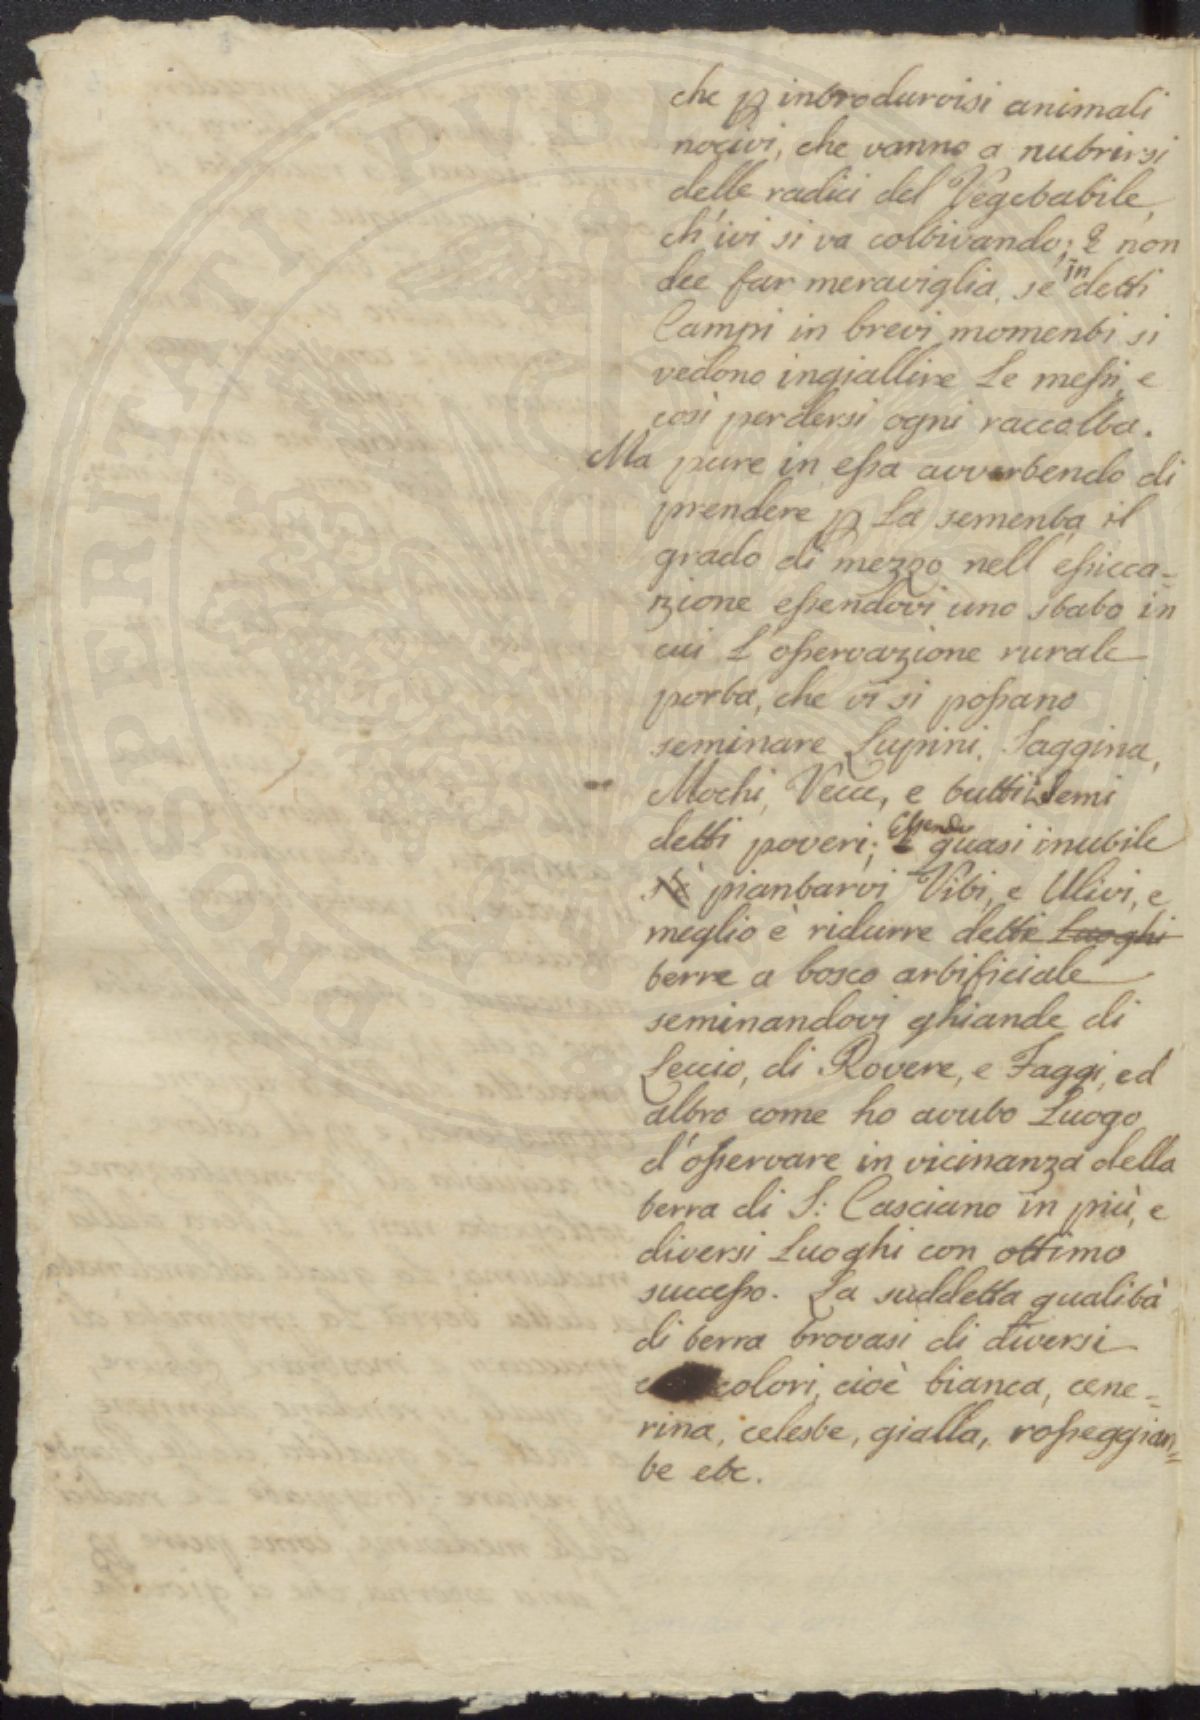 che p introdurvisi animali
nocivi, che vanno a nutrirsi
delle radici del Vegetabile,
ch'ivi si va coltivando; E non
dee far meraviglia, se in detti
Campi in brevi momenti si
vedono ingiallire Le messi, e
così perdersi ogni raccolta.
Ma pure in essa avvertendo di
prendere p La sementa il
grado di mezzo nell essicca=
zione essendovi uno stato in
cui L'osservazione rurale
porta, che vi si possano
seminare Lupini, Saggina,
Mochi, Vecce, e tutti i Semi
detti poveri; Essendo quasi inutile
piantarvi Viti, e Ulivi, e
meglio è ridurre dette Luoghi
terre a bosco artificiale
seminandovi ghiande di
Leccio, di Rovere, e Faggi, ed
altro come ho avuto Luogo
d'osservare in vicinanza della
terra di S: Casciano in più, e
diversi Luoghi con ottimo
successo. La suddetta qualità
di terra trovasi di diversi
colori, cioè bianca, cene=
rina, celeste, gialla, rosseggian=
te etc.
PROSPERITATI PVBLICAE